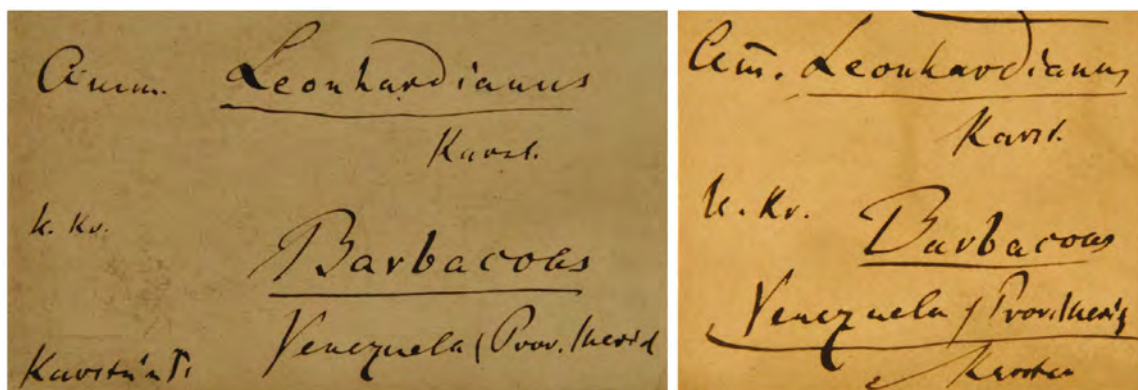 Amm. Leonhardianus
Karst.
u. Kr.
Barbacoas
Venezuela (Prov. Merid
Am̄. Leonhardianus
Karst.
u. Kr.
Barbacoas
Venezuela (Prov. Merid
Karsten